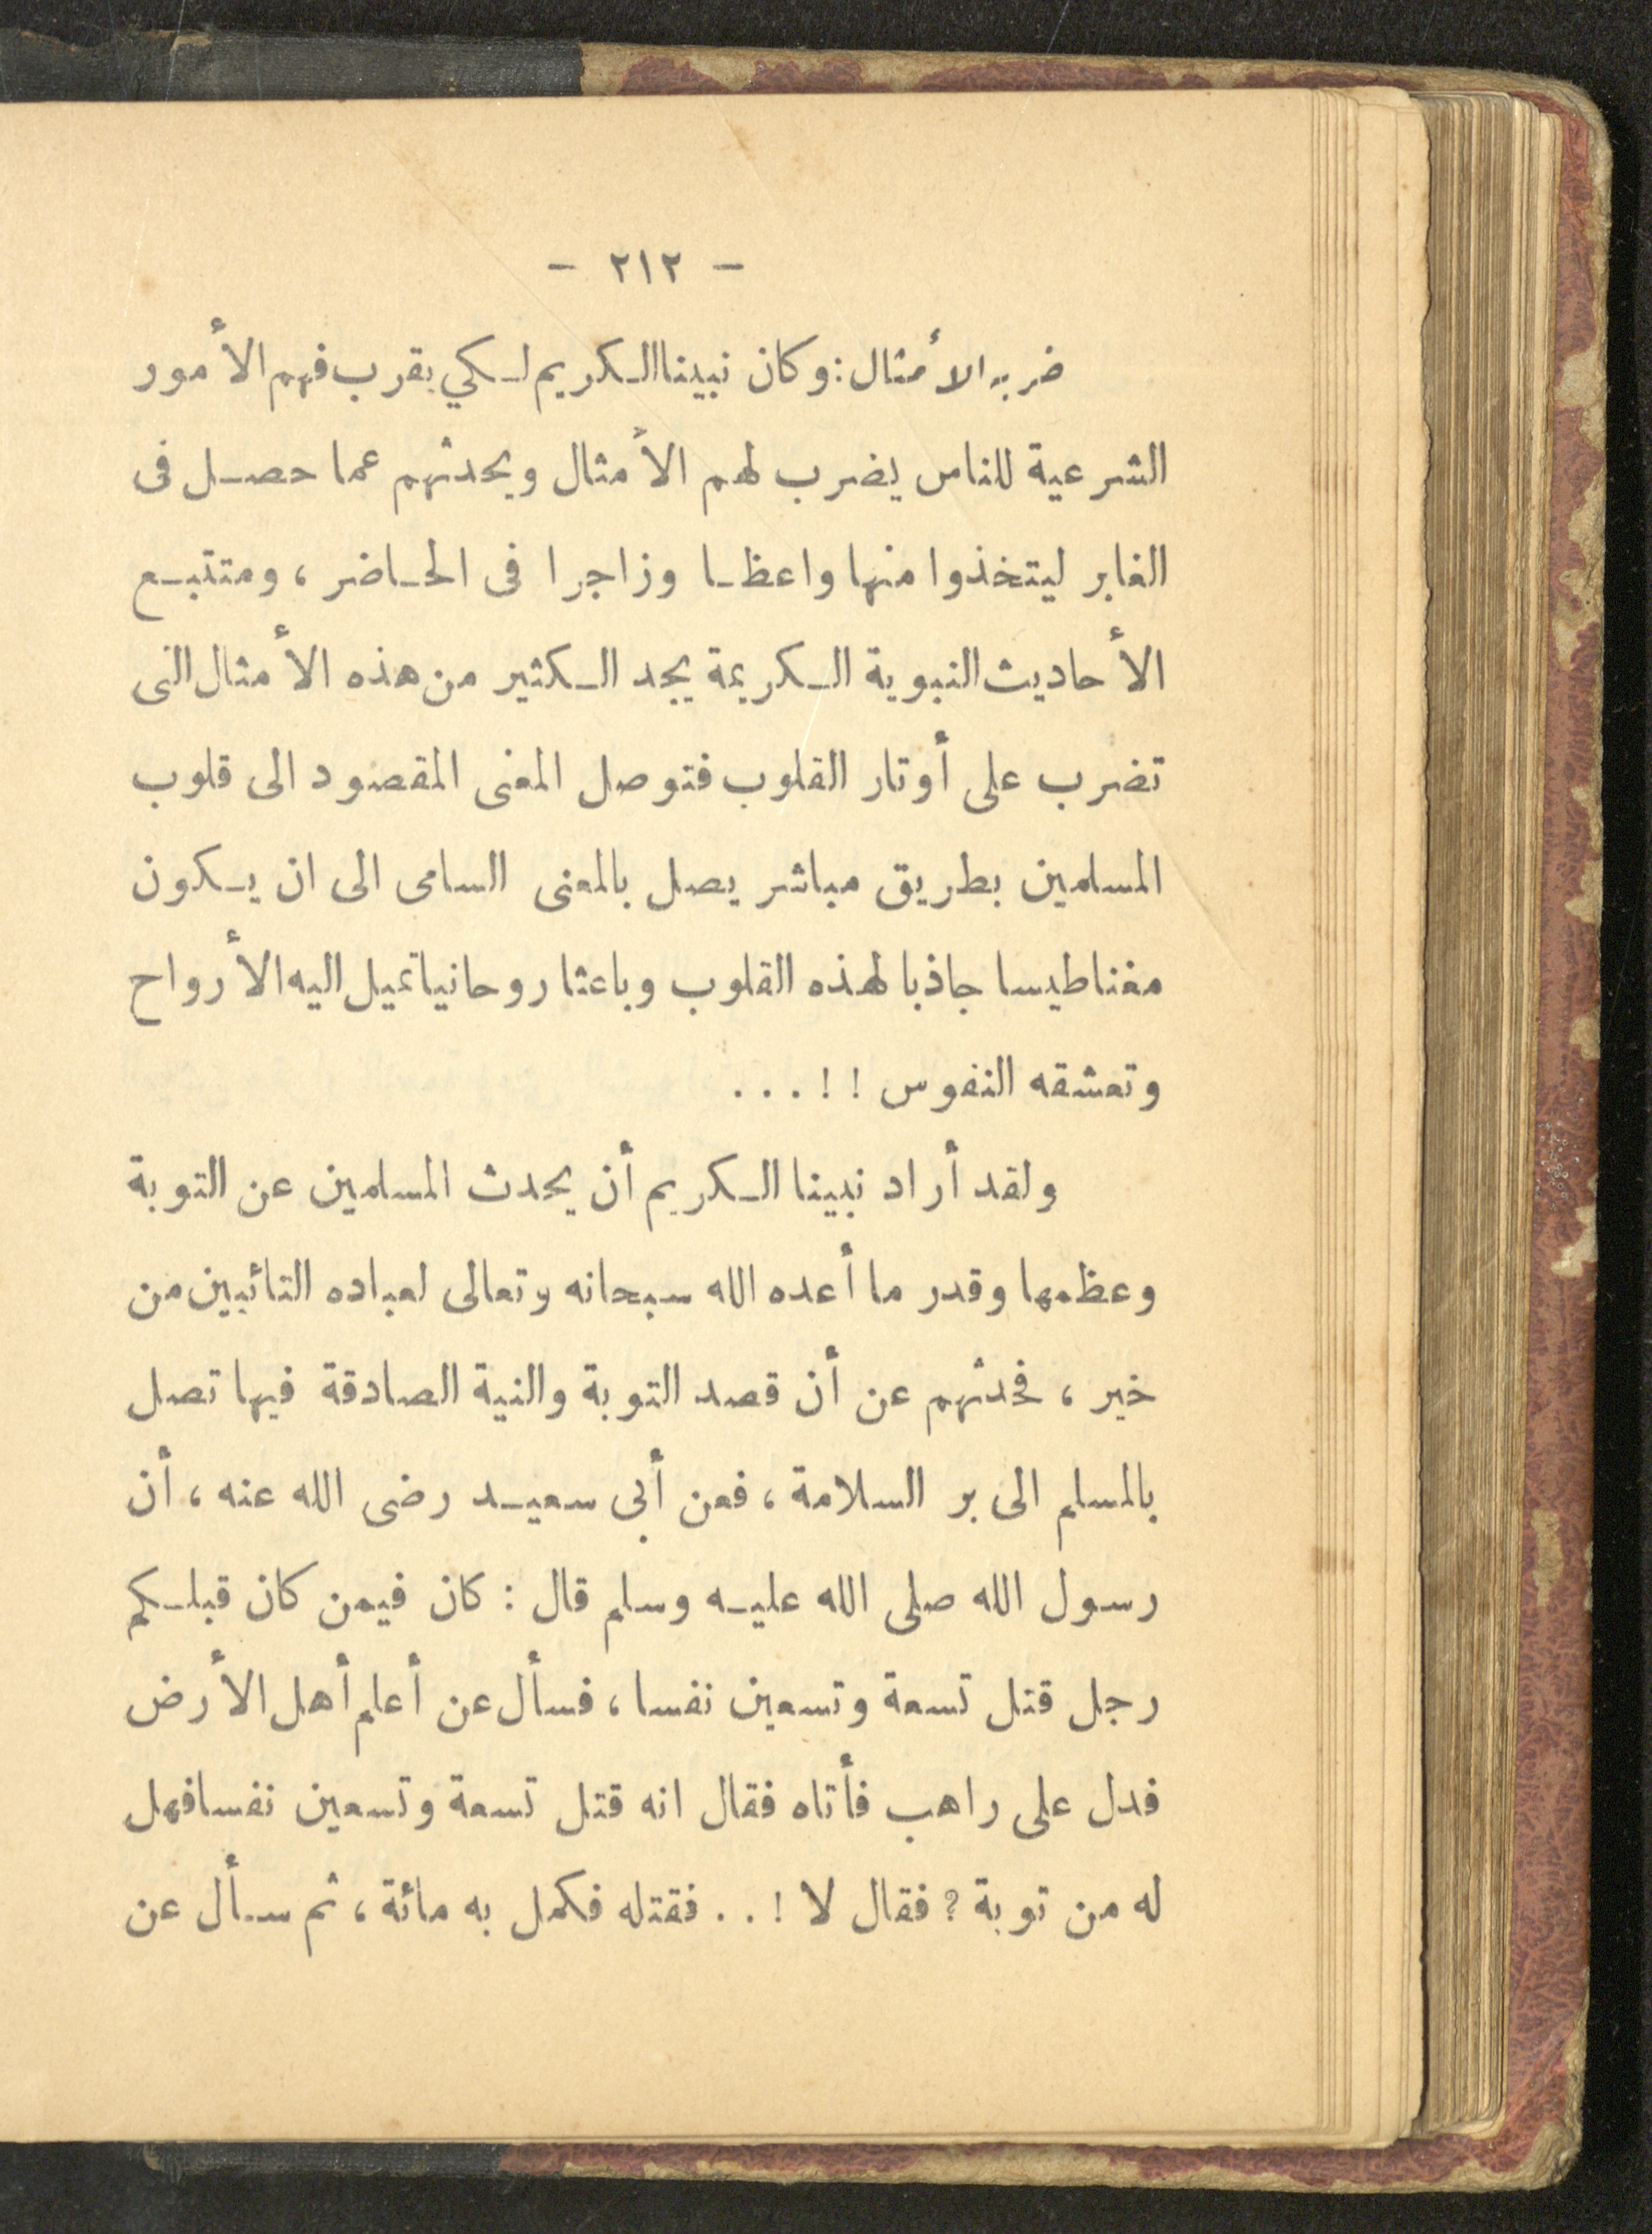 - ٢١٢ -
ضربه الأمثال : وكان نبينا الكريم لكي يقرب فهم الأمور
الشرعية للناس يضرب لهم الأمثال ويحدثهم عما حصل فى
الغابر ليتخذوا منها واعظا وزاجرا فى الحاضر ، ومتتبع
الأحاديث النبوية الكريمة يجد الكثير من هذه الأمثال التى
تضرب على أوتار القلوب فتوصل المعنى المقصود الى قلوب
المسلمين بطريق مباشر يصل بالمعنى السامى الى ان يكون
مغناطيسا جاذبا لهذه القلوب وباعثا روحانيا تميل اليه الأرواح
وتعشقه النفوس ! ! . . .
ولقد أراد نبينا الكريم أن يحدث المسلمين عن التوبة
وعظمها وقدر ما أعده الله سبحانه وتعالى لعباده التائبين من
خير ، فحدثهم عن أن قصد التوبة والنية الصادقة فيها تصل
بالمسلم الى بر السلامة ، فعن أبى سعيد رضى الله عنه ، أن
رسول الله صلى الله عليه وسلم قال : كان فيمن كان قبلكم
رجل قتل تسعة وتسعين نفسا ، فسأل عن أعلم أهل الأرض
فدل على راهب فأتاه فقال انه قتل تسعة وتسعين نفسا فهل
له من توبة ؟ فقال لا ! . . فقتله فكمل به مائة ، ثم سأل عن